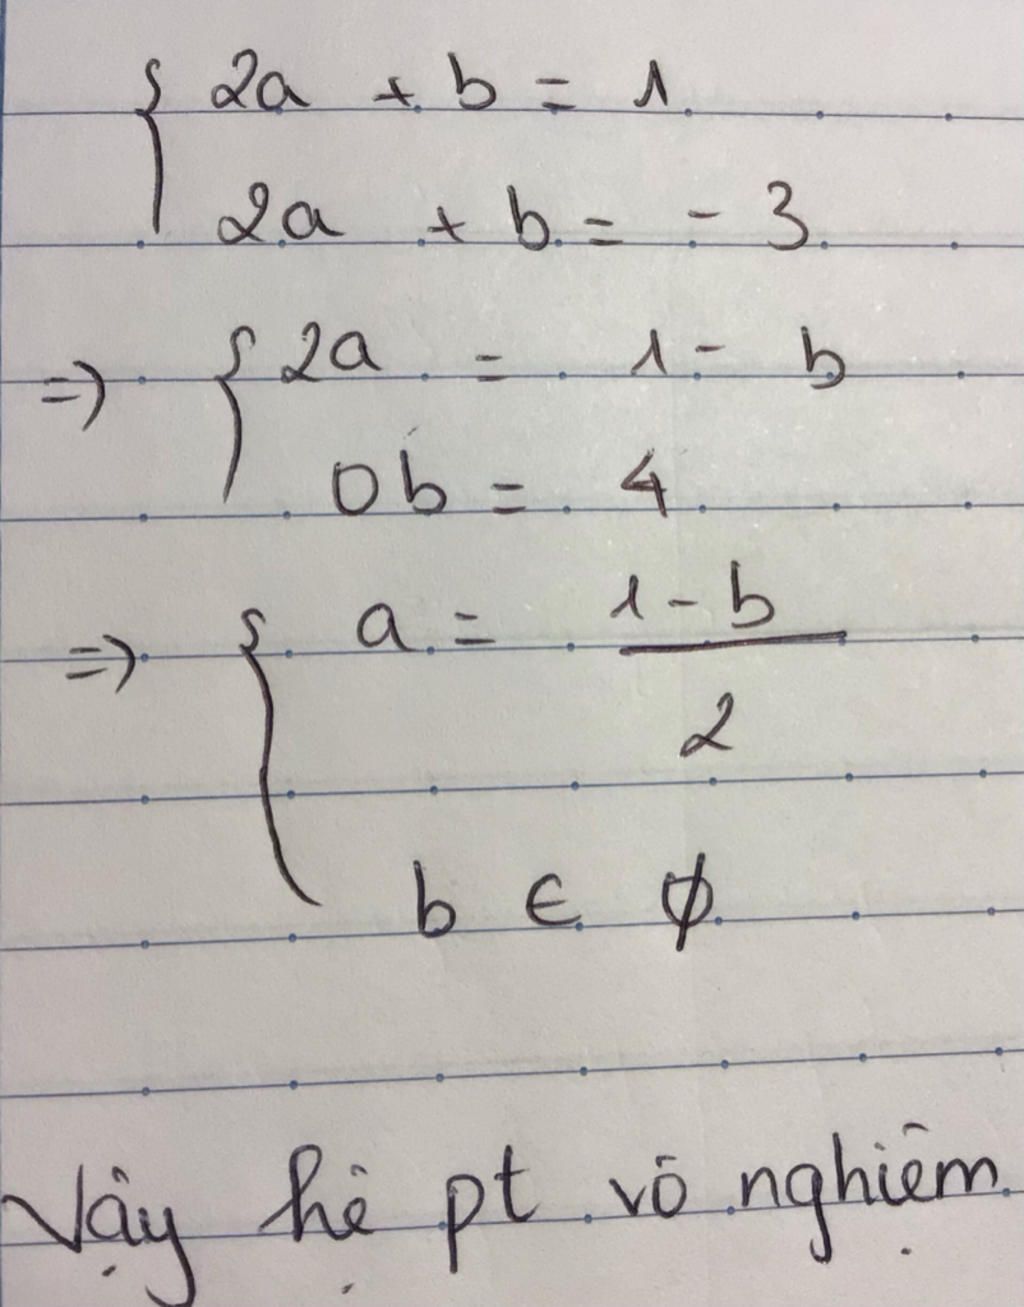 { 2a + b = 1
2a + b = - 3
=) { 2a = 1 - b
0b = 4
=) { a = 1 - b
2
b ∈ ∅
Vậy hệ pt vô nghiệm